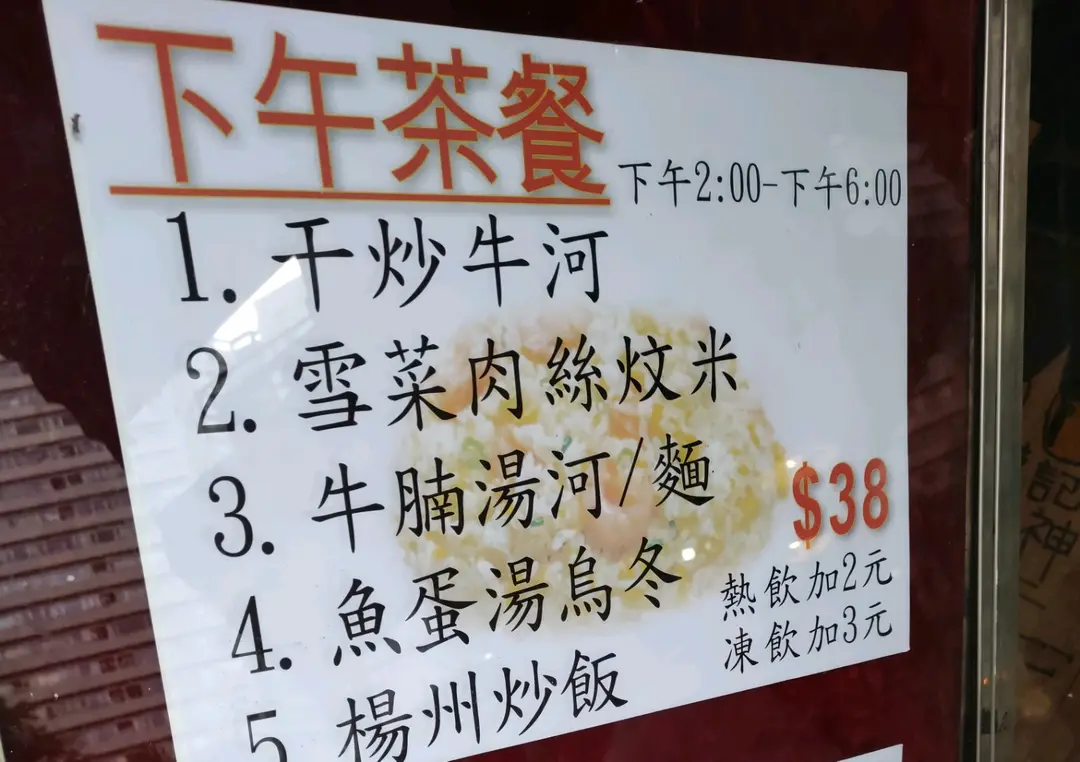 下午茶餐
下午2:00-下午6:00
1. 干炒牛河
2. 雪菜肉絲炆米
3. 牛腩湯河/麵
$38
4. 魚蛋湯烏冬
熱飲加2元
凍飲加3元
5 楊州炒飯
記神